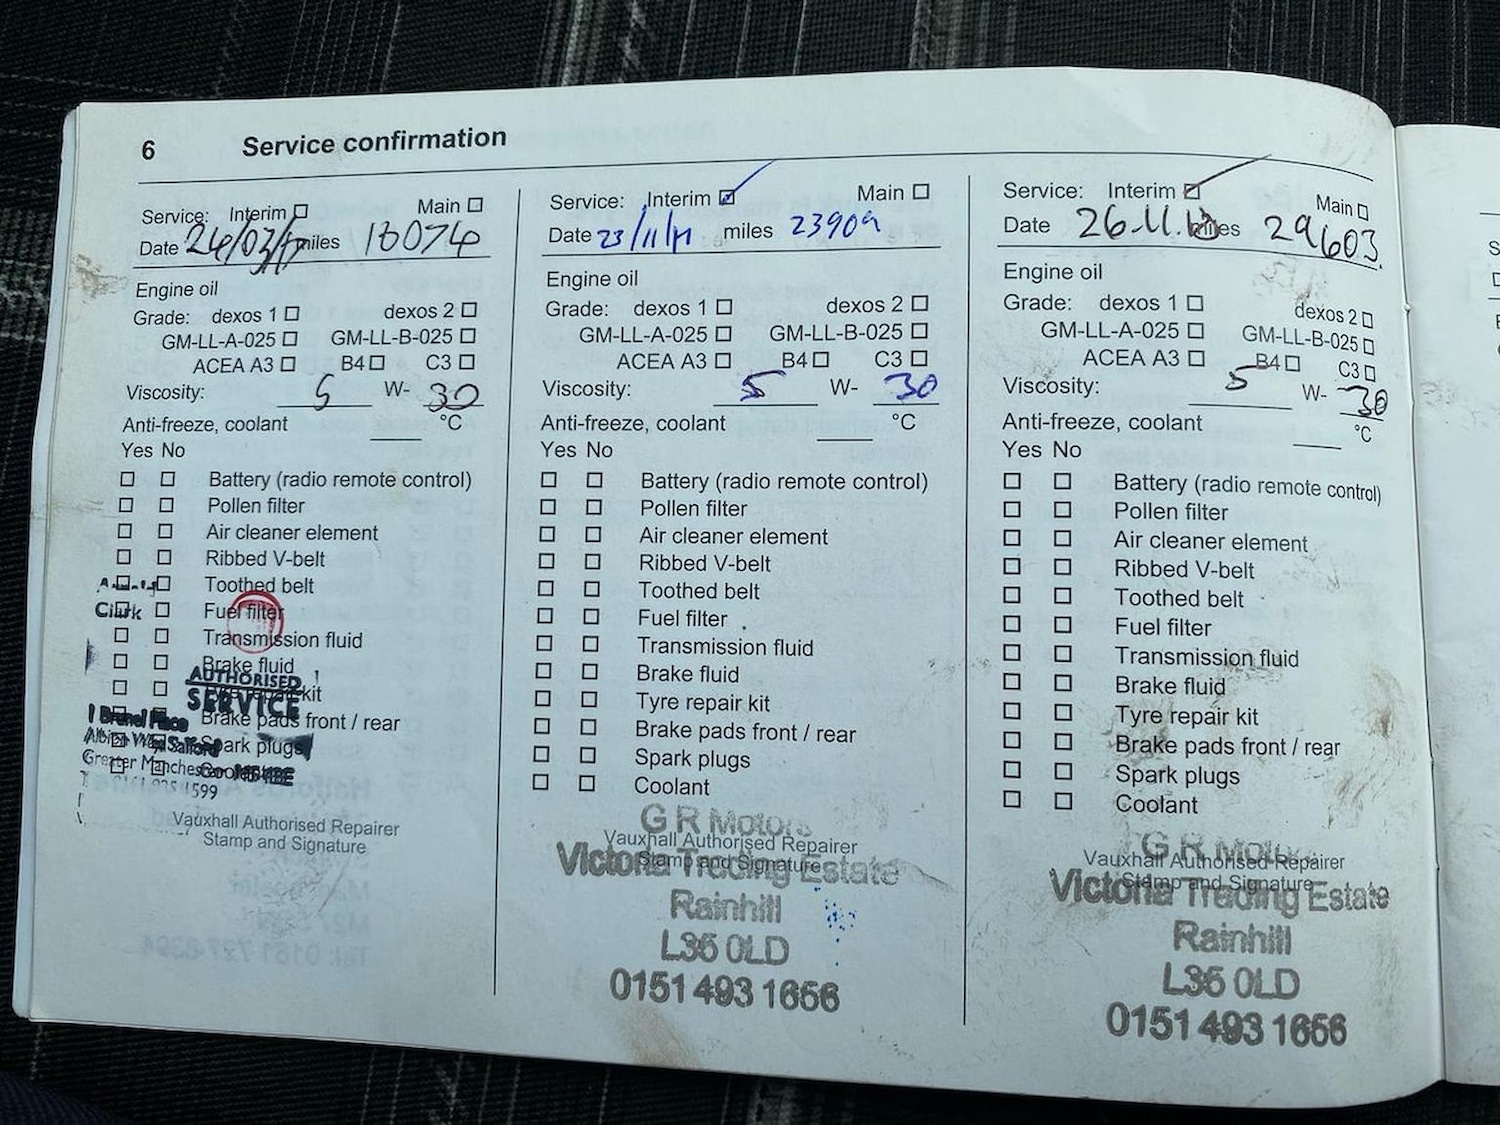 6 Service confirmation
Service: Interim ☐ Main ☐
Date 24/03/17 miles 18074
Engine oil
Grade: dexos 1 ☐ dexos 2 ☐
GM-LL-A-025 ☐ GM-LL-B-025 ☐
ACEA A3 ☐ B4 ☐ C3 ☐
Viscosity: 5 W- 30
Anti-freeze, coolant ___ °C
Yes No
☐ ☐ Battery (radio remote control)
☐ ☐ Pollen filter
☐ ☐ Air cleaner element
☐ ☐ Ribbed V-belt
☐ ☐ Toothed belt
Clark
☐ ☐ Fuel filter
☐ ☐ Transmission fluid
☐ ☐ Brake fluid
AUTHORISED
☐ ☐ Tyre repair kit
SERVICE
☐ ☐ Brake pads front / rear
1 Brunel Place
☐ ☐ Spark plugs
Salford
☐ ☐ Coolant
Greater Manchester
1599
Vauxhall Authorised Repairer
Stamp and Signature
Service: Interim ☑ Main ☐
Date 23/11/17 miles 23909
Engine oil
Grade: dexos 1 ☐ dexos 2 ☐
GM-LL-A-025 ☐ GM-LL-B-025 ☐
ACEA A3 ☐ B4 ☐ C3 ☐
Viscosity: 5 W- 30
Anti-freeze, coolant ___ °C
Yes No
☐ ☐ Battery (radio remote control)
☐ ☐ Pollen filter
☐ ☐ Air cleaner element
☐ ☐ Ribbed V-belt
☐ ☐ Toothed belt
☐ ☐ Fuel filter
☐ ☐ Transmission fluid
☐ ☐ Brake fluid
☐ ☐ Tyre repair kit
☐ ☐ Brake pads front / rear
☐ ☐ Spark plugs
☐ ☐ Coolant
G R Motors
Vauxhall Authorised Repairer
Stamp and Signature
Victoria Trading Estate
Rainhill
L35 0LD
0151 493 1656
Service: Interim ☑ Main ☐
Date 26.11.18 miles 29603.
Engine oil
Grade: dexos 1 ☐ dexos 2 ☐
GM-LL-A-025 ☐ GM-LL-B-025 ☐
ACEA A3 ☐ B4 ☐ C3 ☐
Viscosity: 5 W- 30
Anti-freeze, coolant ___ °C
Yes No
☐ ☐ Battery (radio remote control)
☐ ☐ Pollen filter
☐ ☐ Air cleaner element
☐ ☐ Ribbed V-belt
☐ ☐ Toothed belt
☐ ☐ Fuel filter
☐ ☐ Transmission fluid
☐ ☐ Brake fluid
☐ ☐ Tyre repair kit
☐ ☐ Brake pads front / rear
☐ ☐ Spark plugs
☐ ☐ Coolant
G R Motors
Vauxhall Authorised Repairer
Stamp and Signature
Victoria Trading Estate
Rainhill
L35 0LD
0151 493 1656